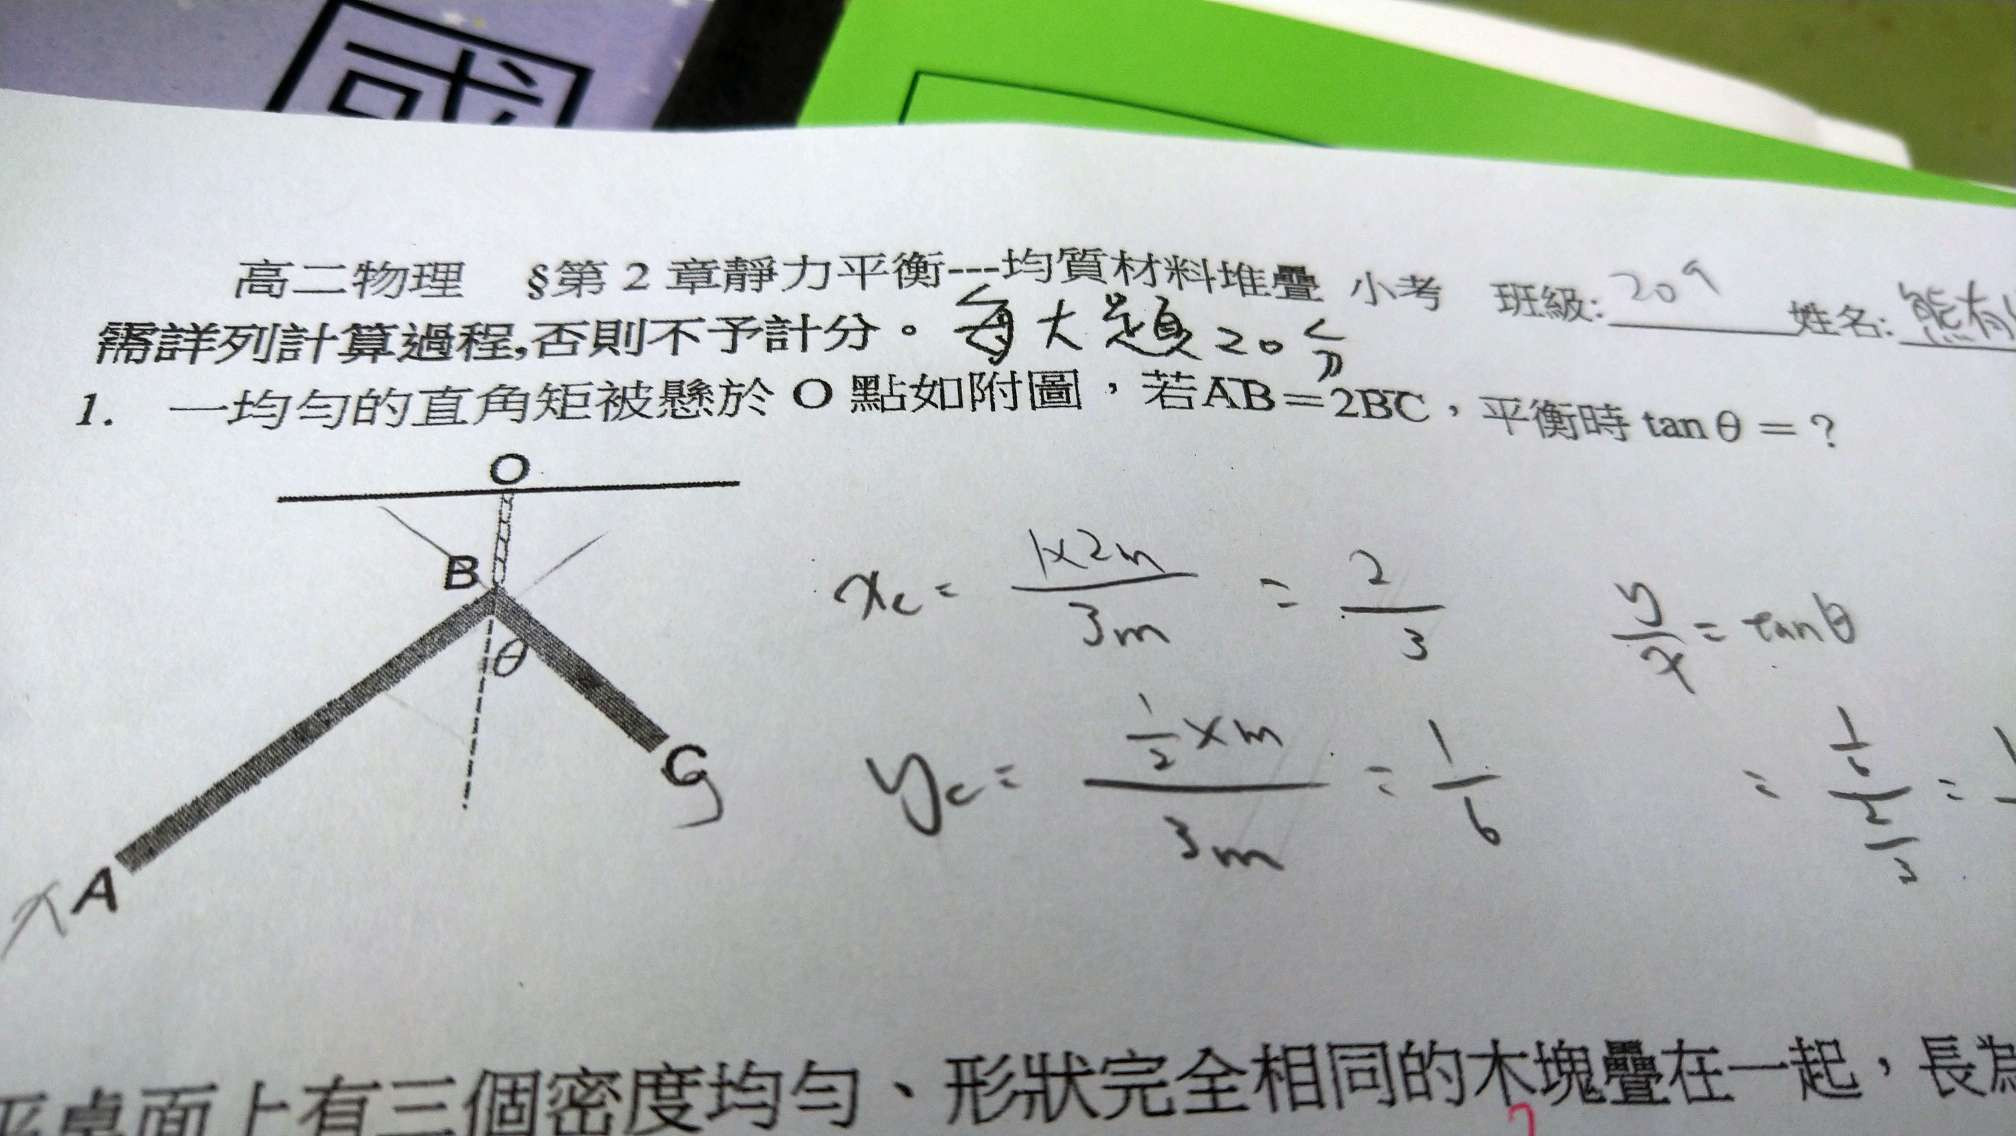 高二物理 §第 2 章靜力平衡---均質材料堆疊 小考 班級: 209 姓名: 熊有
需詳列計算過程,否則不予計分。每大題20分
1. 一均勻的直角矩被懸於 O 點如附圖，若AB=2BC，平衡時 tanθ=?
O
B
θ
C
A
x
y
xc = 1×2m / 3m = 2/3
y/x = tanθ
yc = 1/2×m / 3m = 1/6
= 1/6 / 2/3 =
平桌面上有三個密度均勻、形狀完全相同的木塊疊在一起，長為